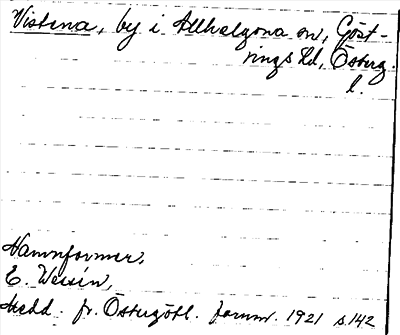 Vistena, by i Allhelgona sn, Göst-
rings hd, Österg.
l.
Namnformer,
E. Wessén,
Medd. fr. Östergötl. fornm. 1921 s. 142